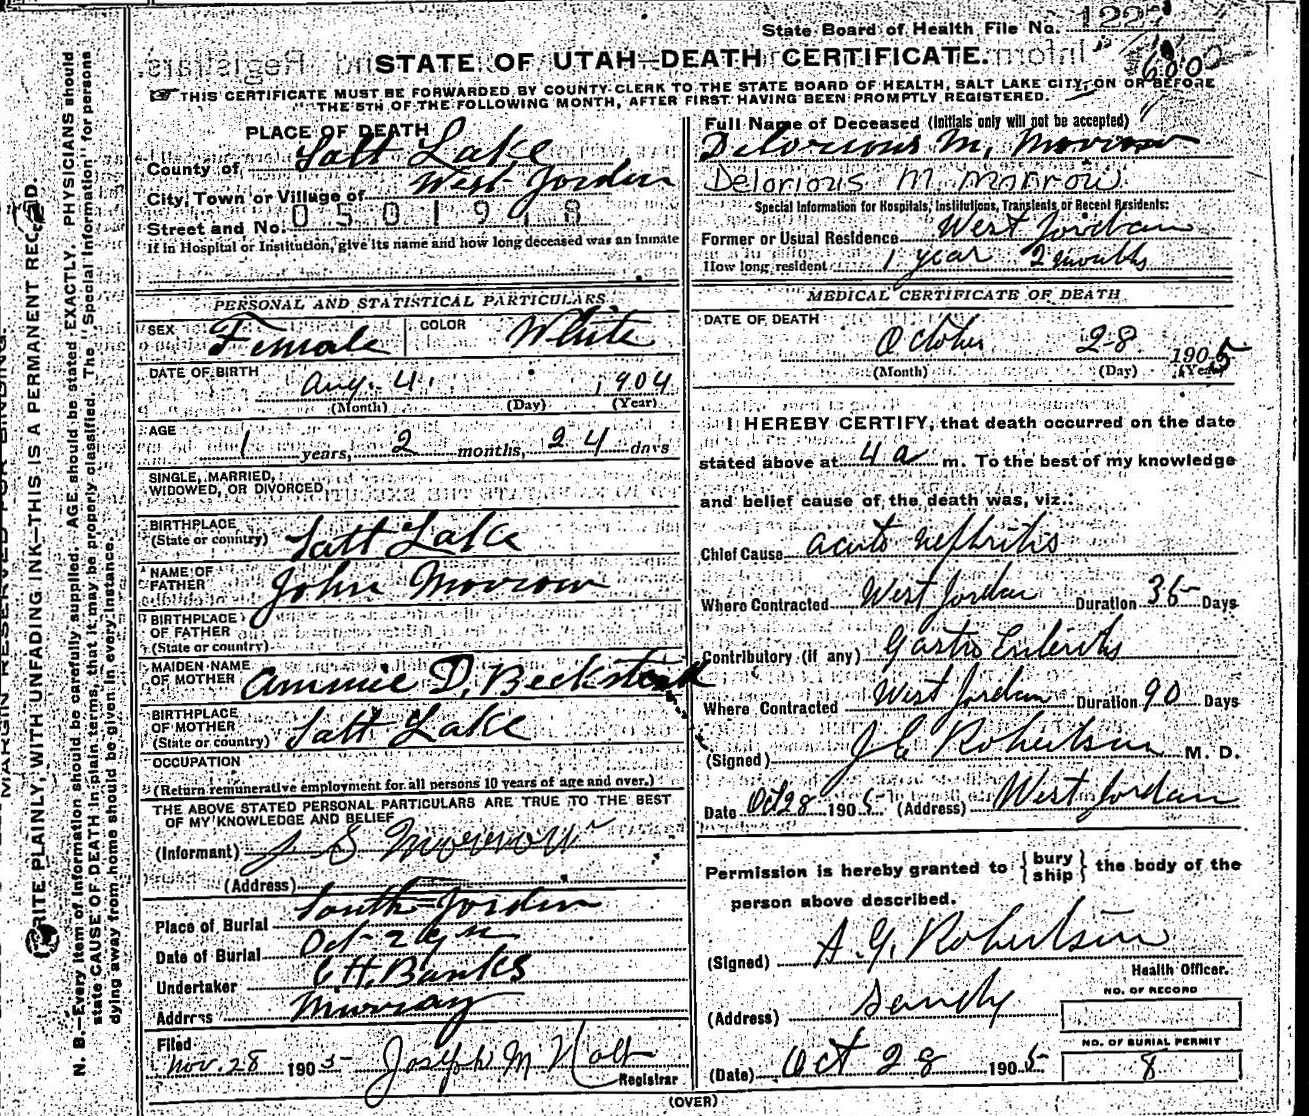 State Board of Health File No. 1227
600
STATE OF UTAH—DEATH CERTIFICATE.
THIS CERTIFICATE MUST BE FORWARDED BY COUNTY CLERK TO THE STATE BOARD OF HEALTH, SALT LAKE CITY, ON OR BEFORE
THE 5TH OF THE FOLLOWING MONTH, AFTER FIRST HAVING BEEN PROMPTLY REGISTERED.
PLACE OF DEATH
County of Salt Lake
City, Town or Village of West Jorden
Street and No. 0501918
If in Hospital or Institution, give its name and how long deceased was an inmate
PERSONAL AND STATISTICAL PARTICULARS
SEX Female COLOR White
DATE OF BIRTH Aug. 4. 1904
(Month) (Day) (Year)
AGE 1 years, 2 months, 24 days
SINGLE, MARRIED,
WIDOWED, OR DIVORCED
BIRTHPLACE
(State or country) Salt Lake
NAME OF
FATHER John Morrow
BIRTHPLACE
OF FATHER
(State or country)
MAIDEN NAME
OF MOTHER Ammie D. Beckstead
BIRTHPLACE
OF MOTHER
(State or country) Salt Lake
OCCUPATION
(Return remunerative employment for all persons 10 years of age and over.)
THE ABOVE STATED PERSONAL PARTICULARS ARE TRUE TO THE BEST
OF MY KNOWLEDGE AND BELIEF
(Informant) J S Morrow
(Address)
Place of Burial South Jorden
Date of Burial Oct 29th
Undertaker C H. Banks
Address Murray
Filed
Nov. 28 1905 Joseph M Holt
Registrar
Full Name of Deceased (Initials only will not be accepted)
Delorious M. Morrow
Delorious M. Morrow
Special Information for Hospitals, Institutions, Transients or Recent Residents:
Former or Usual Residence West Jordan
How long resident 1 year 2 months
MEDICAL CERTIFICATE OF DEATH
DATE OF DEATH
October 28 1905
(Month) (Day) (Year)
I HEREBY CERTIFY, that death occurred on the date
stated above at 4 a m. To the best of my knowledge
and belief cause of the death was, viz.:
Chief Cause acute nephritis
Where Contracted West Jordan Duration 35 Days
Contributory (if any) Gastro Enteritis
Where Contracted West Jordan Duration 90 Days
(Signed) J E Robertson M. D.
Date Oct 28 1905 (Address) West Jordan
Permission is hereby granted to { bury ship } the body of the
person above described.
(Signed) A. G. Robertson
Health Officer.
(Address) Sandy
NO. OF RECORD
(Date) Oct 28 1905
NO. OF BURIAL PERMIT
8
(OVER)
MARGIN RESERVED FOR BINDING.
WRITE PLAINLY, WITH UNFADING INK—THIS IS A PERMANENT RECORD.
N. B.—Every item of information should be carefully supplied. AGE should be stated EXACTLY. PHYSICIANS should
state CAUSE OF DEATH in plain terms, that it may be properly classified. The "Special Information" for persons
dying away from home should be given in every instance.